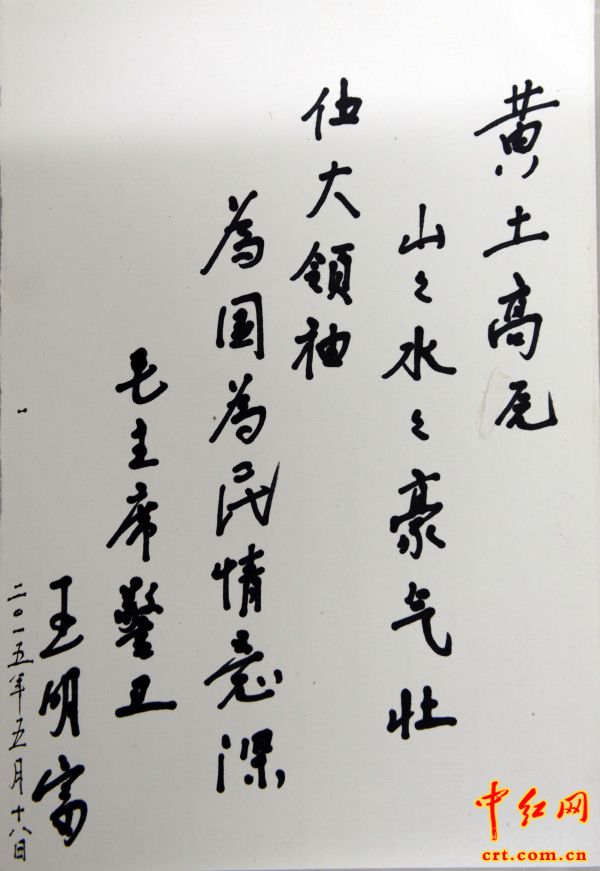 黄土高原
山々水々豪气壮
伟大領袖
為国為民情意深
毛主席警卫
王明富
二〇一五年五月十八日
中红网
crt.com.cn